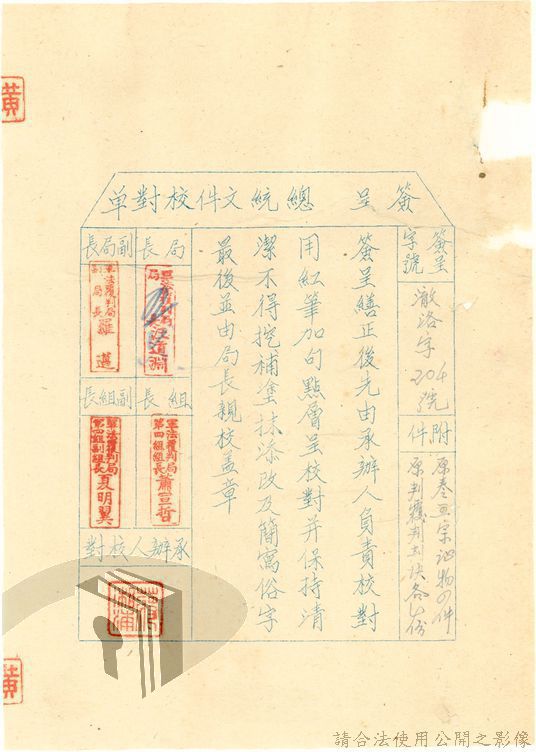 簽呈 總統文件校對单
簽呈字號
澈洛字204號
附件
原卷 宗 物 件
原判 判
簽呈繕正後先由承辦人負責校對
用紅筆加句點層呈校對并保持清
潔不得挖補塗抹添改及簡寫俗字
最後並由局長親校盖章
局長
汪道淵
副局長
軍法覆判局
副局長 羅
組長
軍法覆判局
第四組組長 蕭宣哲
副組長
軍法覆判局
第四組副組長 夏明翼
承辦人校對
黃
請合法使用公開之影像